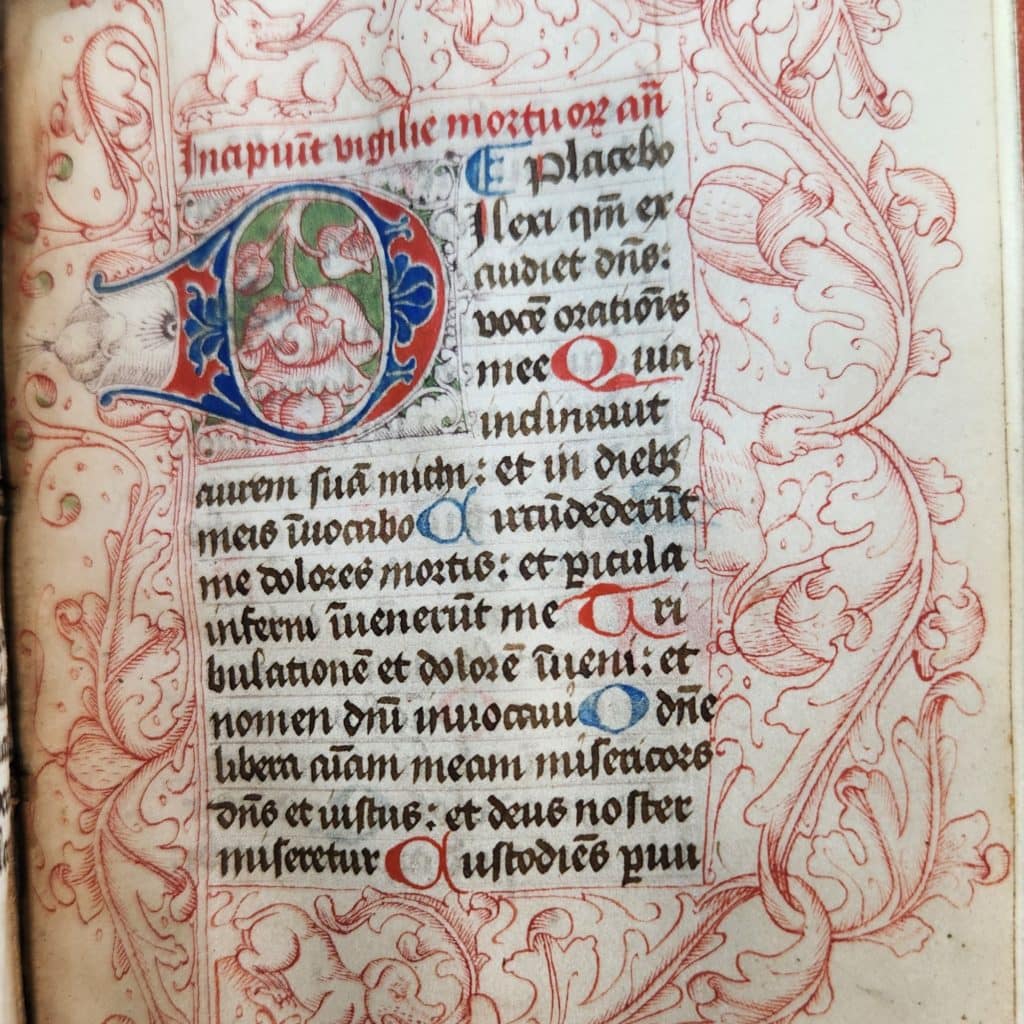 Incipiūt vigilie mortuoꝝ an̄
E Placebo
DIlexi qm̄ ex
audiet dn̄s:
vocē orationīs
mee Quia
inclinauit
aurem suā michi: et in diebꝫ
meis īuocabo Circūdederūt
me dolores mortis: et ꝑicula
inferni īuenerūt me Tri
bulationē et dolorē īueni: et
nomen dn̄i inuocaui O dn̄e
libera aīam meam misericors
dn̄s et iustus: et deus noster
miseretur Custodiēs ꝑuu